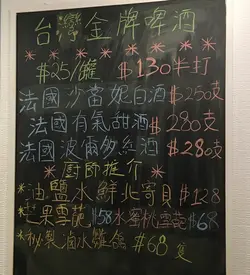 台灣金牌啤酒
* * * * * * * * *
$25/罐 $130半打
法國沙當妮白酒$250支
法國有氣甜酒$280支
法國波爾多紅酒$280支
* 廚師推介 *
*油鹽水鮮北寄貝$128
*芒果雪葩$58水蜜桃雪葩$68
*秘製滷水雞 $68隻